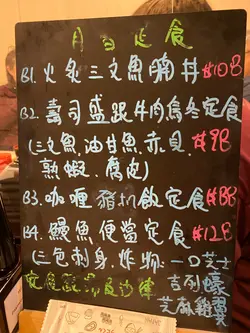 月日定食
B1. 火炙三文魚腩丼 $108
B2. 壽司盛跟牛肉烏冬定食
(三文魚,油甘魚,赤貝, $98
熟蝦,腐皮)
B3. 咖喱豬扒飯定食 $88
B4. 鰻魚便當定食 $128
(三色刺身,炸物,一口芝士
吉列蠔
芝麻雞翼